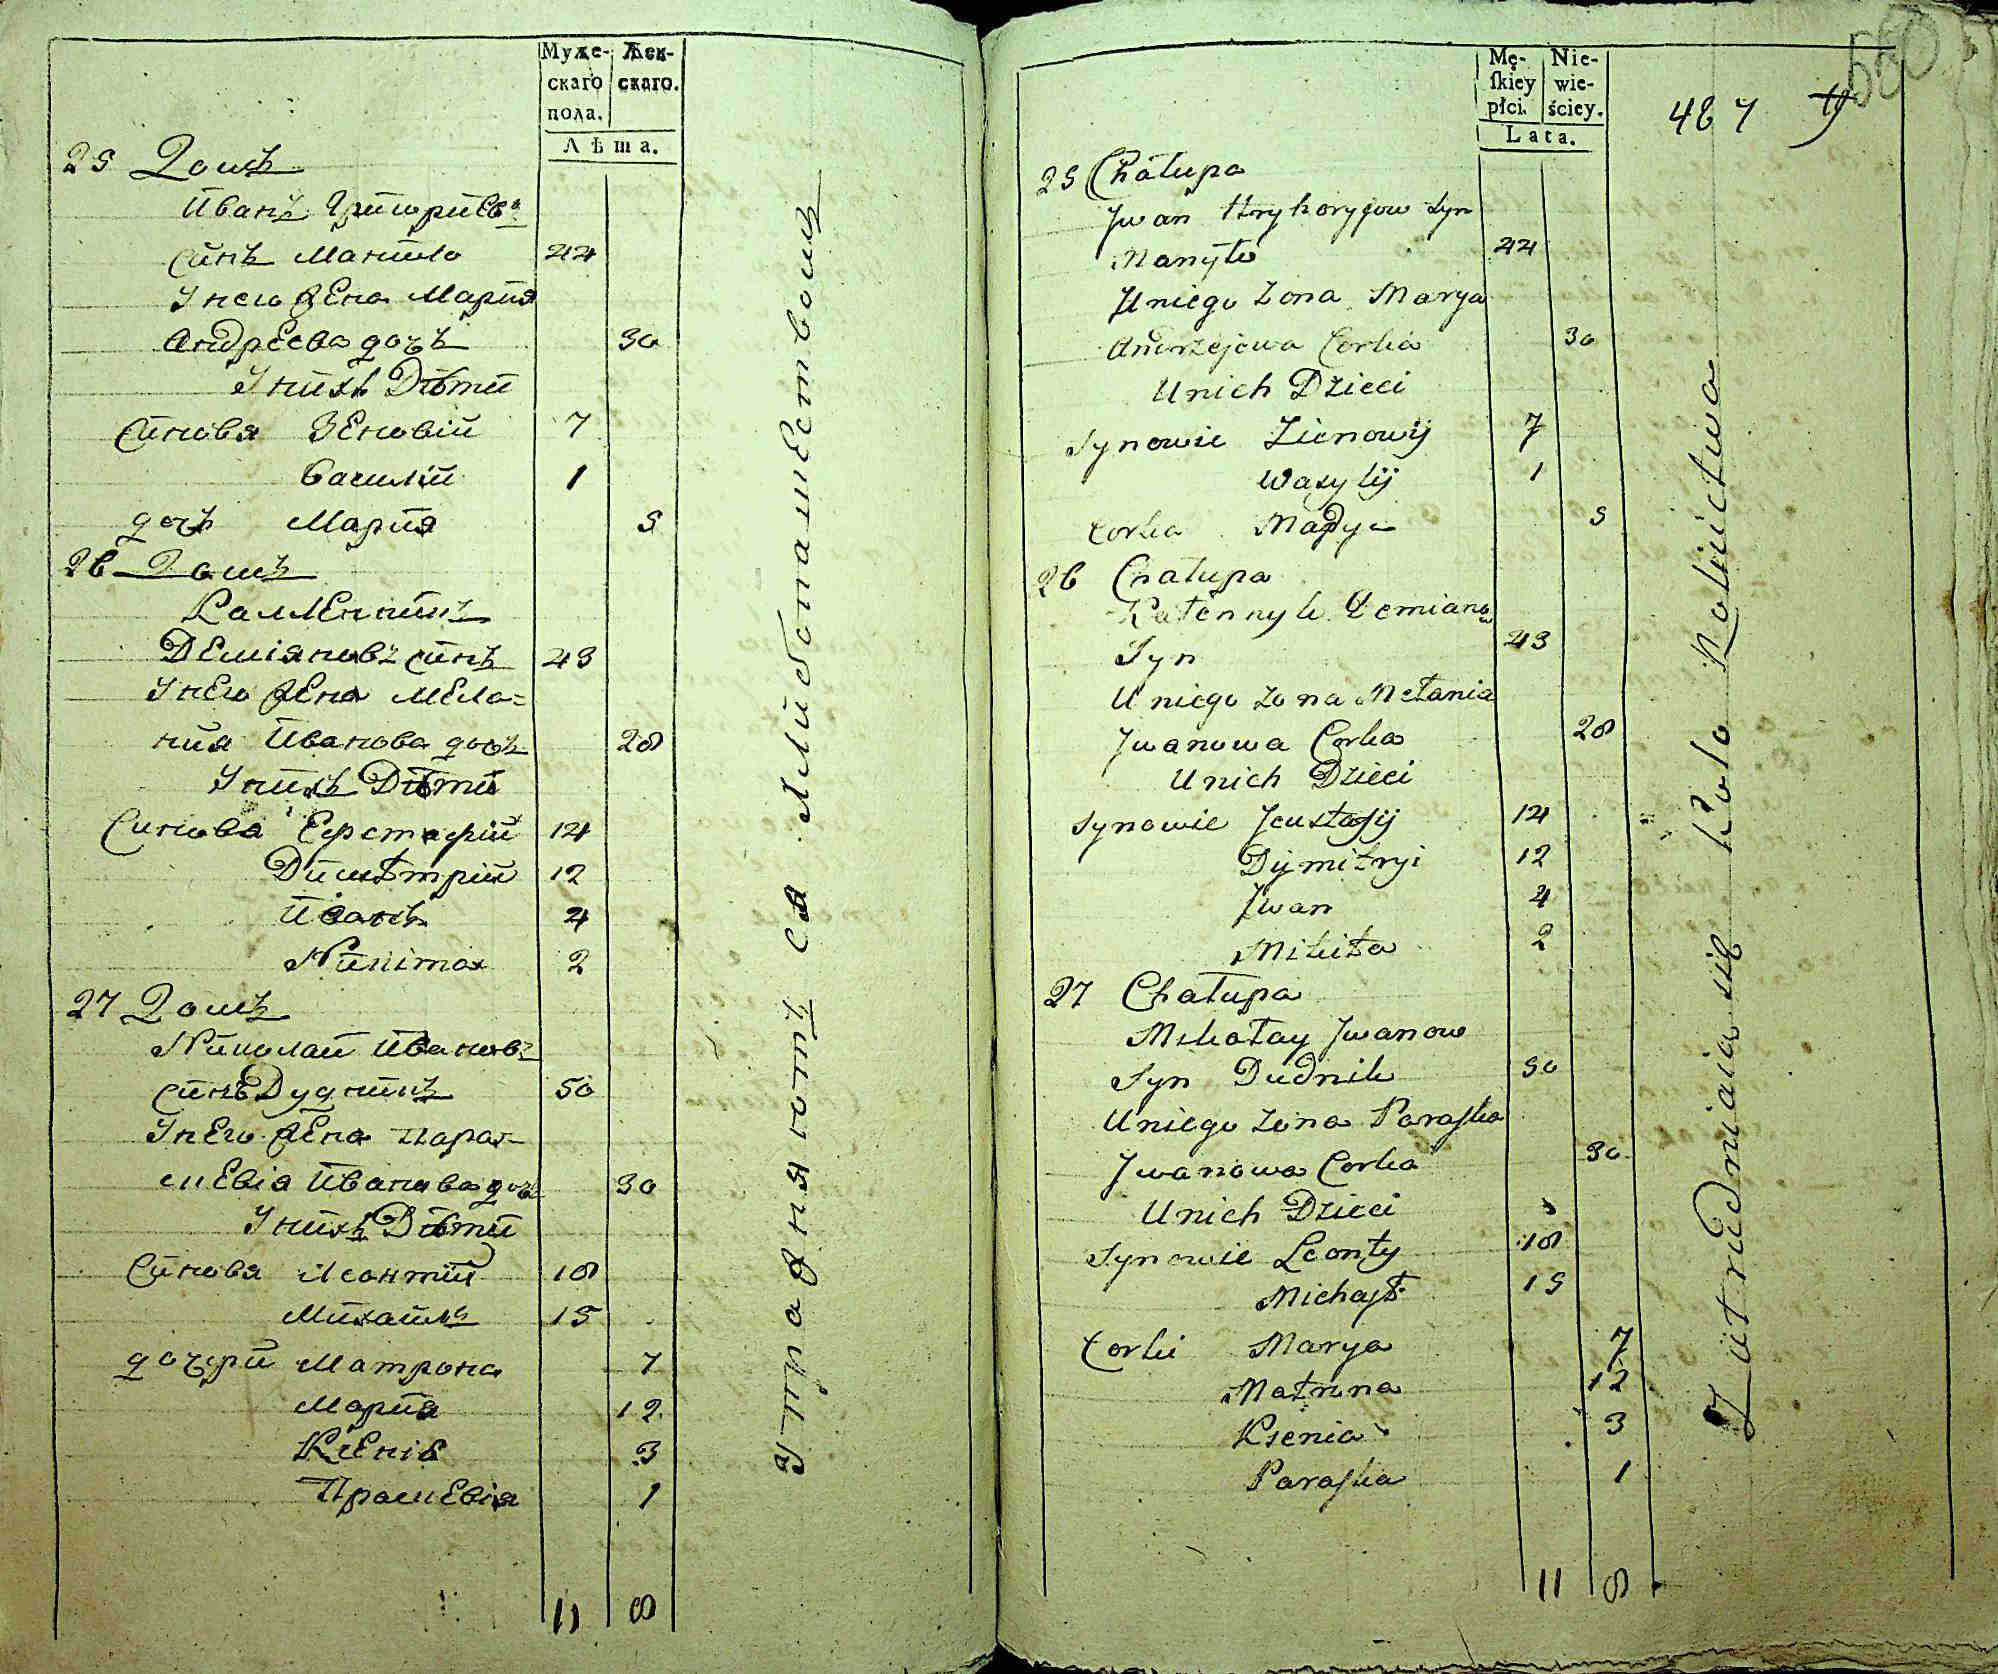 Муже-
скаго
пола.
Жен-
скаго.
Лѣта.
25 Домъ
Иванъ Григориевъ
Синъ Манило 44
У него Жена Мария
Андреева дочь 30
У нихъ Дѣти
Синовя Зеновій 7
Василій 1
дочь Мария 5
26 Домъ
Калленникъ
Деміяновъ синъ 43
У него Жена Мела=
ния Иванова дочь 28
У нихъ Дѣти
Синовя Ефстафій 14
Димѣтрій 12
Иванъ 4
Никита 2
27 Домъ
Николай Ивановъ
синъ Дудникъ 50
У него Жена Парас-
кевія Иванова дочь 30
У нихъ Дѣти
Синовя Леонтий 18
Михаилъ 15
дочери Матрона 7
Мария 12
Ксенія 3
Праскевія 1
11 8
Упражняются хлибопашествомъ
Mę-
ſkiey
płci.
Nie-
wie-
ściey.
Lata.
467
560
25 Chałupa
Jwan Hryhoryjow Syn
Manyło 44
U niego Zona Marya
Andrzejowa Corka 30
U nich Dzieci
Synowie Zienowij 7
Wasylij 1
Corka Marya 5
26 Chałupa
Kalennyk Demianow
Syn 43
U niego Zona Mełania
Jwanowa Corka 28
U nich Dzieci
Synowie Jeustafij 14
Dijmitryi 12
Jwan 4
Mikita 2
27 Chałupa
Mikołay Jwanow
Syn Dudnik 50
U niego Zona Paraſka
Jwanowa Corka 30
U nich Dzieci
Synowie Leonty 18
Michaył 15
Corki Marya 7
Matruna 12
Ksenia 3
Paraſka 1
11 8
Zatrudniaia się Koło Rolnictwa